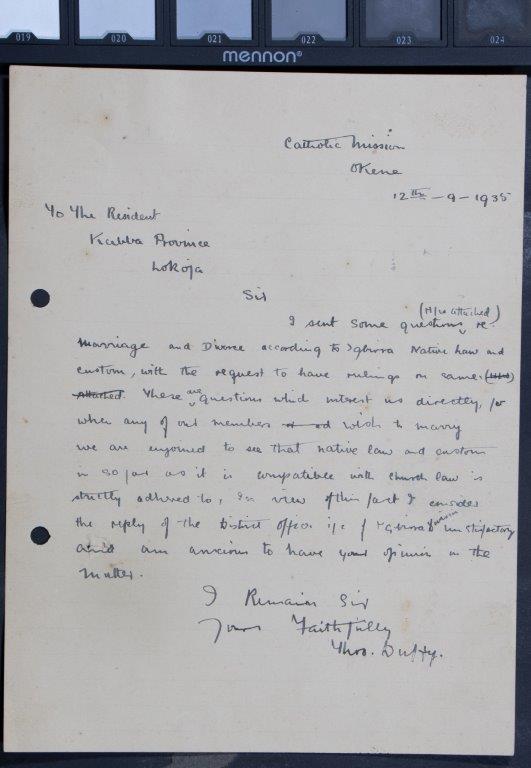 019 020 021 022 023 024
mennon®
Catholic Mission
Okene
12th - 9 - 1935
To The Resident
Kabba Province
Lokoja
Sir
(attached)
I sent some questions re.
Marriage and Divorce according to Igbirra Native Law and
custom, with the request to have rulings on same.
attached. These are questions which interest us directly, for
when any of our members wish to marry
we are enjoined to see that native law and custom
in so far as it is compatible with Church law is
strictly adhered to, In view of this fact I consider
the reply of the District Officer i/c of Igbirra Division unsatisfactory
and am anxious to have your opinion on the
matter.
I Remain Sir
Yours Faithfully
Thos. Duffy.